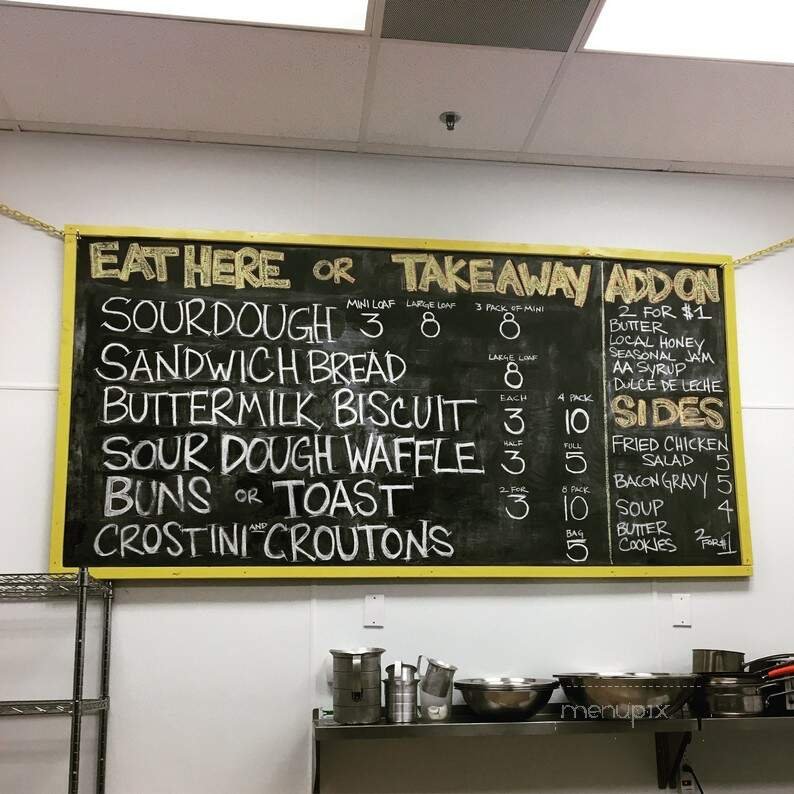 EAT HERE OR TAKEAWAY
MINI LOAF LARGE LOAF 3 PACK OF MINI
SOURDOUGH 3 8 8
LARGE LOAF
SANDWICH BREAD 8
EACH 4 PACK
BUTTERMILK BISCUIT 3 10
HALF FULL
SOUR DOUGH WAFFLE 3 5
2 FOR 8 PACK
BUNS OR TOAST 3 10
BAG
CROSTINI AND CROUTONS 5
ADD ON
2 FOR $1
BUTTER
LOCAL HONEY
SEASONAL JAM
AA SYRUP
DULCE DE LECHE
SIDES
FRIED CHICKEN
SALAD 5
BACON GRAVY 5
SOUP 4
BUTTER
COOKIES 2 FOR $1
menupix